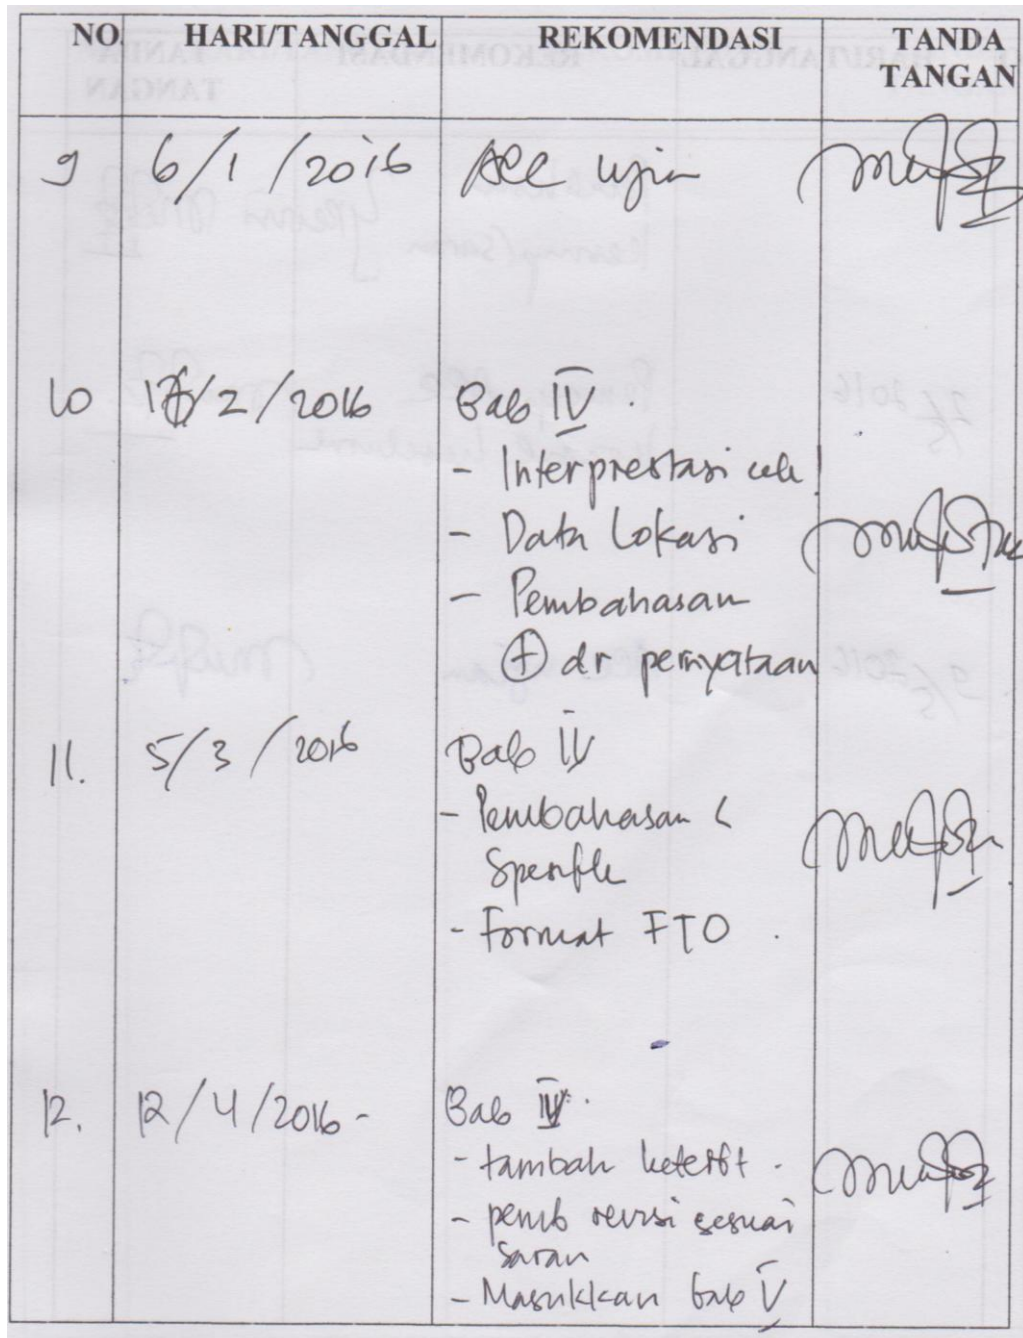 NO. HARI/TANGGAL REKOMENDASI TANDA TANGAN
9 6/1/2016 Acc ujian
10 /2/2016 Bab IV.
- Interprestasi cek!
- Data Lokasi
- Pembahasan
+ dr pernyataan
11. 5/3/2016 Bab IV
- Pembahasan <
Spesifik
- Format FTO
12. 12/4/2016 - Bab IV.
- tambah
- pemb revisi sesuai
saran
- Masukkan bab V